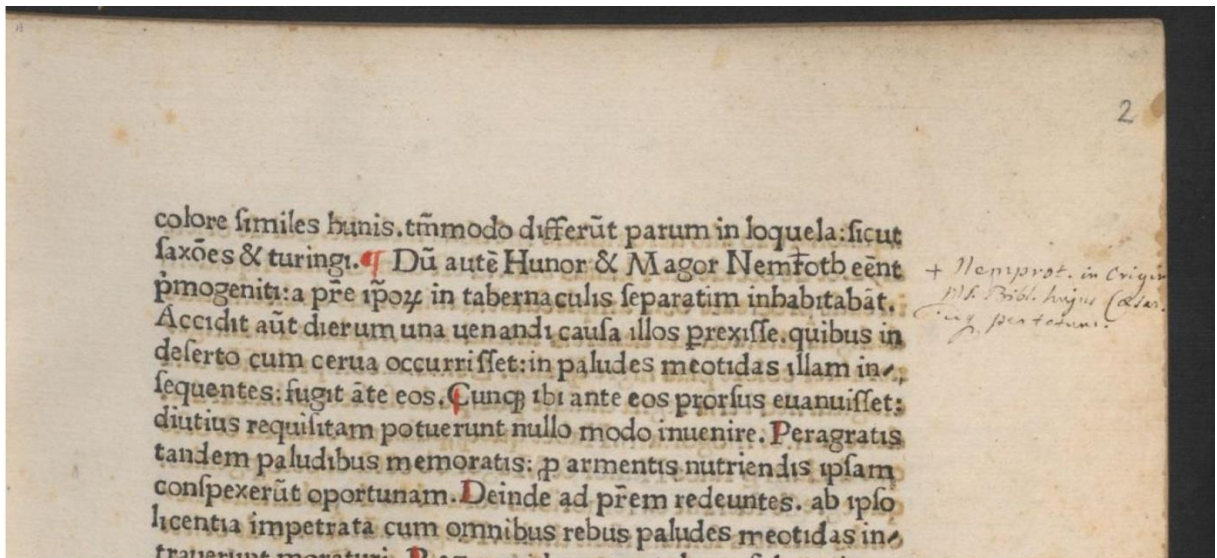 2
colore similes hunis. tm̄modo differūt parum in loquela: sicut
saxōes & turingi. ¶ Dū autē Hunor & Magor Nemr̄oth eēnt
p̍mogeniti: a pr̄e ip̄oꝝ in tabernaculis separatim inhabitabāt.
Accidit aūt dierum una uenandi causa illos ꝑrexisse. quibus in
deserto cum cerua occurrisset: in paludes meotidas illam in⸗
sequentes: fugit āte eos. Cunqꝫ ibi ante eos prorsus euanuisset:
diutius requisitam potuerunt nullo modo inuenire. Peragratis
tandem paludibus memoratis: ꝓ armentis nutriendis ipsam
conspexerūt oportunam. Deinde ad pr̄em redeuntes. ab ipso
licentia impetrata cum omnibus rebus paludes meotidas in⸗
trauerunt moraturi.
+ Nemprot. in
Ms. Bibl. hujus Cæsar.